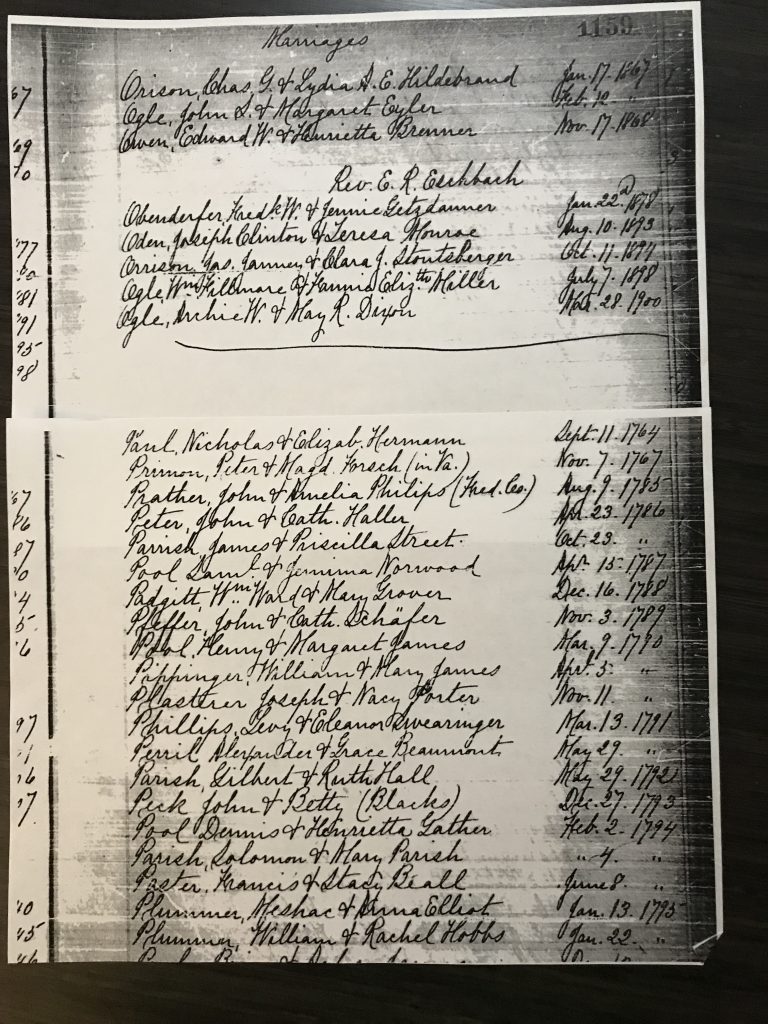 Marriages 1159
67 Orison, Chas. G. & Lydia A. E. Hildebrand Jan. 17. 1867
Ogle, John L. & Margaret Eyler Feb. 12 "
Owen, Edward W. & Henrietta Brenner Nov. 17. 1868
69
70 Rev. E. R. Eschbach
Obenderfer, Fredk W. & Jennie Getzdanner Jan. 22. 1878
'77 Oden, Joseph Clinton & Teresa Monroe Aug. 10. 1893
Orrison, Jas. Janney & Clara J. Stoutsberger Oct. 11. 1894
'81 Ogle, Wm Fillmore & Fannie Elizth Miller July 7. 1898
'91 Ogle, Archie W. & May R. Dixon Mar. 28. 1900
95
98
Paul, Nicholas & Elizab. Hermann Sept. 11. 1764
Primon, Peter & Magd. Forsch (in Va.) Nov. 7. 1767
'67 Prather, John & Amelia Philips (Fred. Co.) Aug. 9. 1785
86 Peter, John & Cath. Haller Apr. 23. 1786
87 Parrish, James & Priscilla Street. Oct. 23. "
Pool Saml. & Jemima Norwood Apr. 15. 1787
Padgitt, Wm Ward & Mary Grover Dec. 16. 1788
Pfeffer, John & Cath. Schäfer Nov. 3. 1789
Pool, Henry & Margaret James Mar. 9. 1790
Pippinger, William & Mary James Apr. 5. "
Plasterer Joseph & Nacy Porter Nov. 11. "
97 Phillips, Levy & Eleanor Swearinger Mar. 13. 1791
Perril Alexander & Grace Beaumont May 29. "
Parish, Gilbert & Ruth Hall May 29. 1792
Peck John & Betty (Blacks) Dec. 27. 1793
Pool Dennis & Henrietta Gather Feb. 2. 1794
Parish, Solomon & Mary Parish " 4. "
Paster, Francis & Stacy Beall June 8. "
Plummer, Meshac & Anna Elliot Jan. 13. 1795
Plummer, William & Rachel Hobbs Jan. 22. "